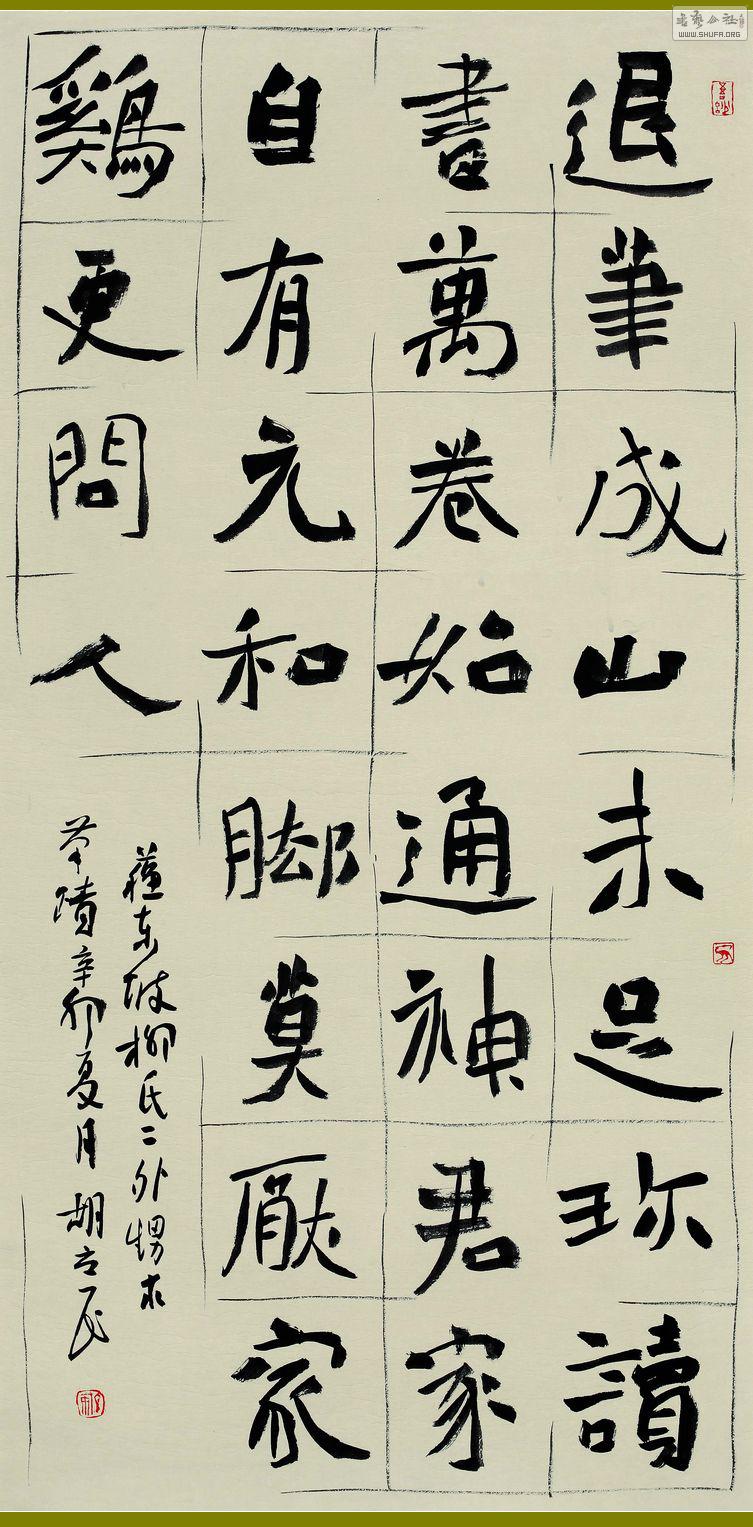 退筆成山未足珍讀
書萬卷始通神君家
自有元和脚莫厭家
鷄更問人
蘓东坡柳氏二外甥求
筆蹟辛卯夏月胡立民
書藝公社
WWW.SHUFA.ORG